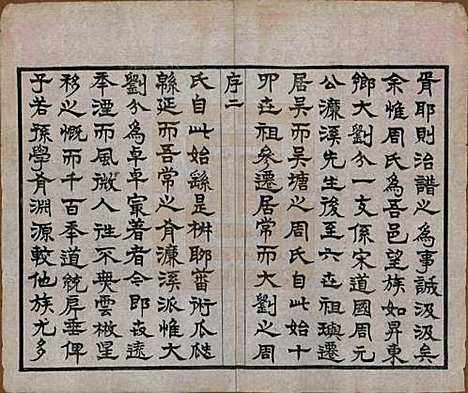 胥耶則治譜之為事誠汲汲矣
余惟周氏為吾邑望族如昇東
鄉大劉分一支係宋道國周元
公濂溪先生後至六世祖璵遷
居吴而吴塘之周氏自此始十
卯世祖參遷居常而大劉之周
序二
氏自此始繇是椒聊蕃衍瓜瓞
緜延而吾常之有濂溪派惟大
劉分為卓卓家著者今即世遠
秊湮而風微人往不無雲樹星
移之慨而千百秊道統屏垂俾
子若孫學有淵源較他族尤多